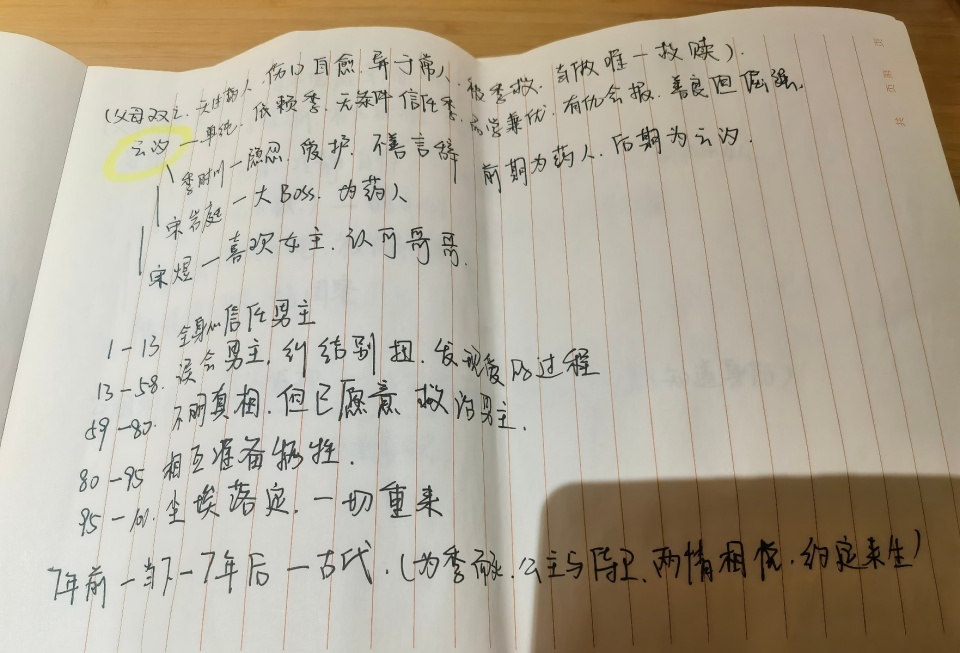 (父母双亡、天生药人、伤口自愈、异于常人、被季救、当做唯一救赎).
云汐 — 单纯、依赖季、无条件信任季、品学兼优、有仇会报、善良但倔强.
季时川 — 隐忍、爱护、不善言辞 前期为药人、后期为云汐.
宋岩庭 — 大Boss. 为药人
宋煜 — 喜欢女主、认可哥哥.
1 — 13 全身心信任男主
13 — 58. 误会男主、纠结别扭、发现爱的过程
59 — 80. 不明真相、但已愿意救治男主.
80 — 95 相互准备牺牲.
95 — 100. 尘埃落定、一切重来
7年前 — 当下 — 7年后 — 古代. (为季而死、公主与侍卫、两情相悦、约定来生)